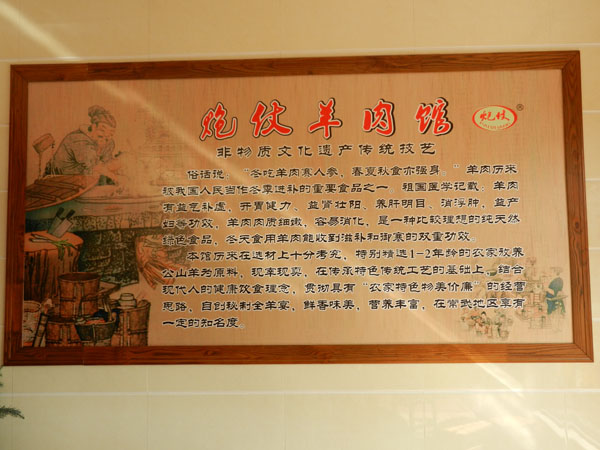 炮仗羊肉馆
炮仗
®
非物质文化遗产传统技艺
俗话说：“冬吃羊肉赛人参、春夏秋食亦强身。”羊肉历来
被我国人民当作冬季进补的重要食品之一。祖国医学记载：羊肉
有益气补虚、开胃健力、益肾壮阳、养肝明目、消浮肿、益产
妇等功效，羊肉肉质细嫩、容易消化，是一种比较理想的纯天然
绿色食品，冬天食用羊肉能收到滋补和御寒的双重功效。
本馆历来在选材上十分考究，特别精选1-2年龄的农家散养
公山羊为原料，现宰现卖，在传承特色传统工艺的基础上，结合
现代人的健康饮食理念，贯彻具有“农家特色物美价廉”的经营
思路，自创秘制全羊宴，鲜香味美，营养丰富，在常武地区享有
一定的知名度。